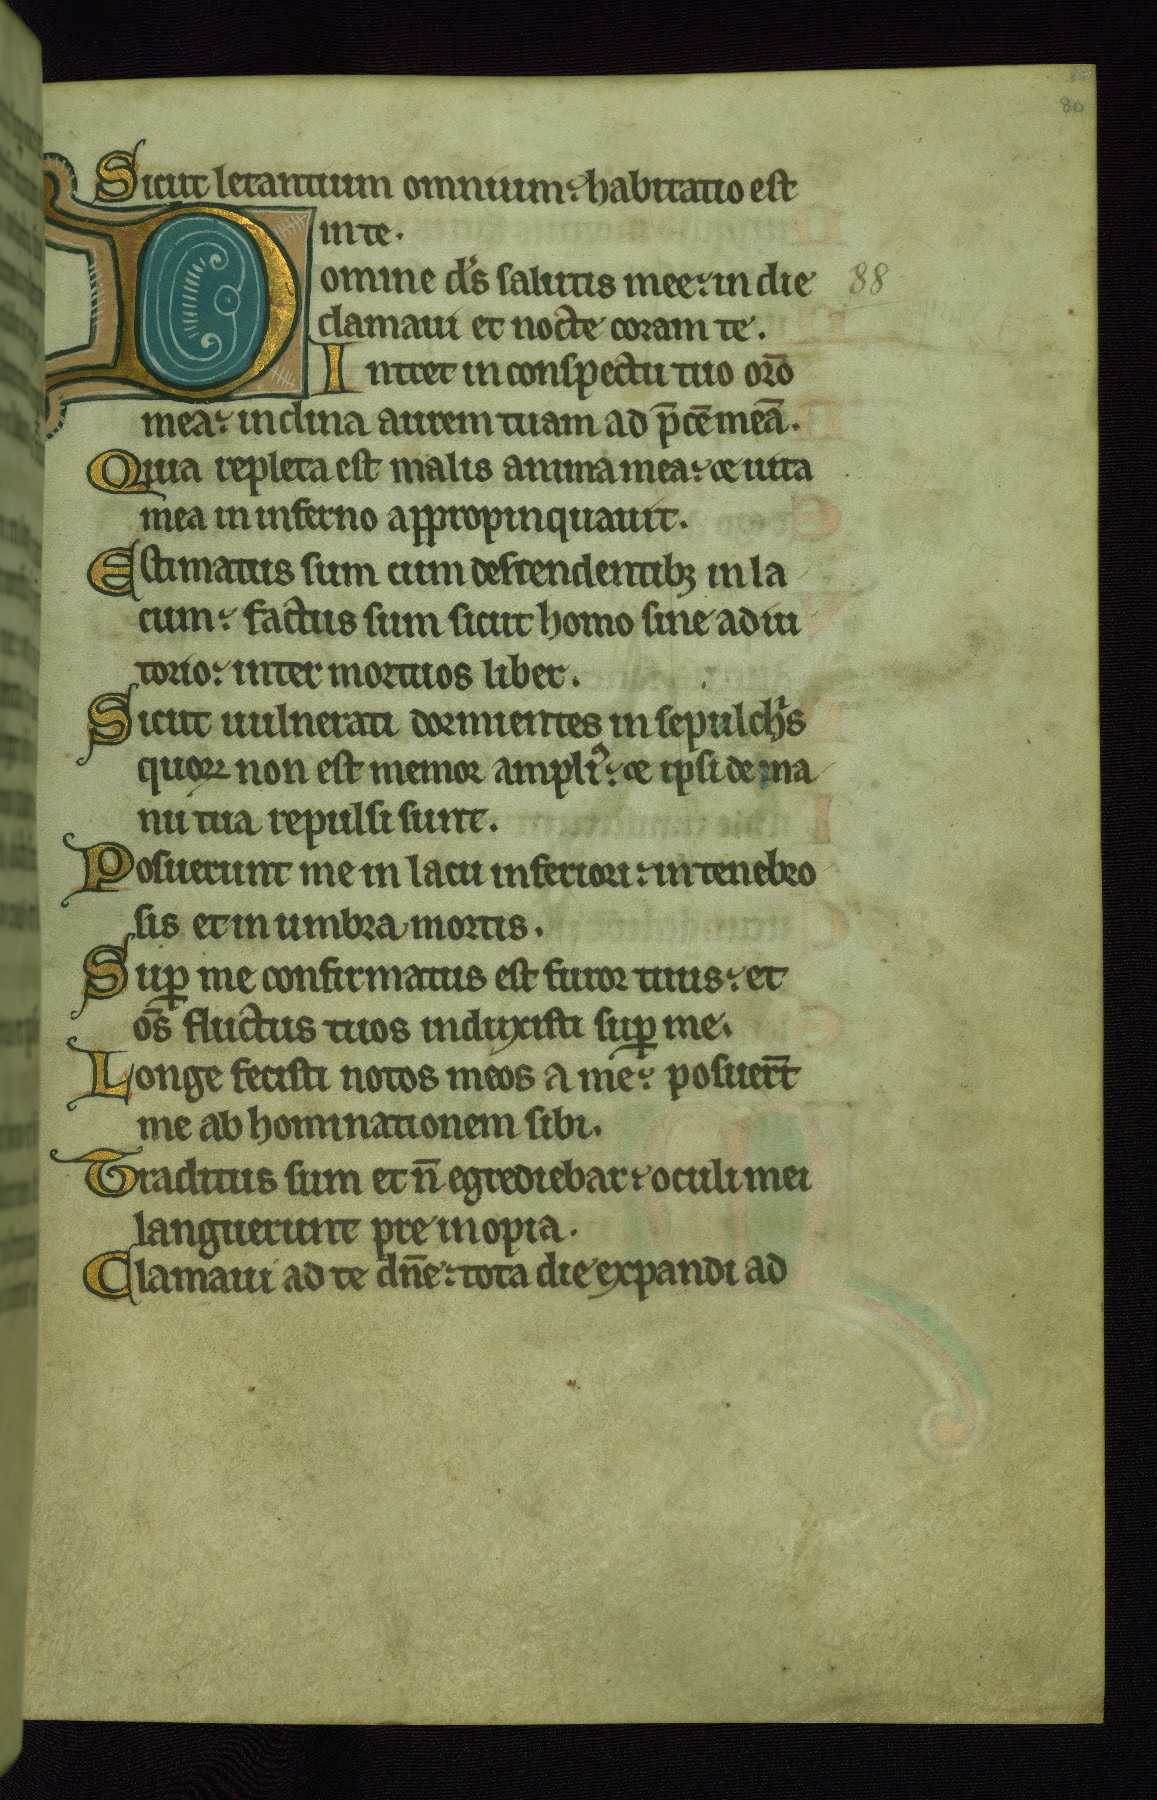 80
Sicut letantium omnium: habitatio est
in te.
Domine ds̄ salutis mee: in die
88
clamaui et nocte coram te.
Intret in conspectu tuo or̄o
mea: inclina aurem tuam ad p̄cē meā.
Quia repleta est malis anima mea: et uita
mea in inferno appropinquauit.
Estimatus sum cum descendentibꝫ in la
cum: factus sum sicut homo sine adiu
torio: inter mortuos liber.
Sicut uulnerati dormientes in sepulchͥs
quoꝝ non est memor ampliꝰ: et ipsi de ma
nu tua repulsi sunt.
Posuerunt me in lacu inferiori: in tenebro
sis et in umbra mortis.
Suꝑ me confirmatus est furor tuus: et
om̄s fluctus tuos induxisti suꝑ me.
Longe fecisti notos meos a me: posuer̄t
me abhominationem sibi.
Traditus sum et n̄ egrediebar: oculi mei
languerunt pre inopia.
Clamaui ad te dn̄e: tota die expandi ad